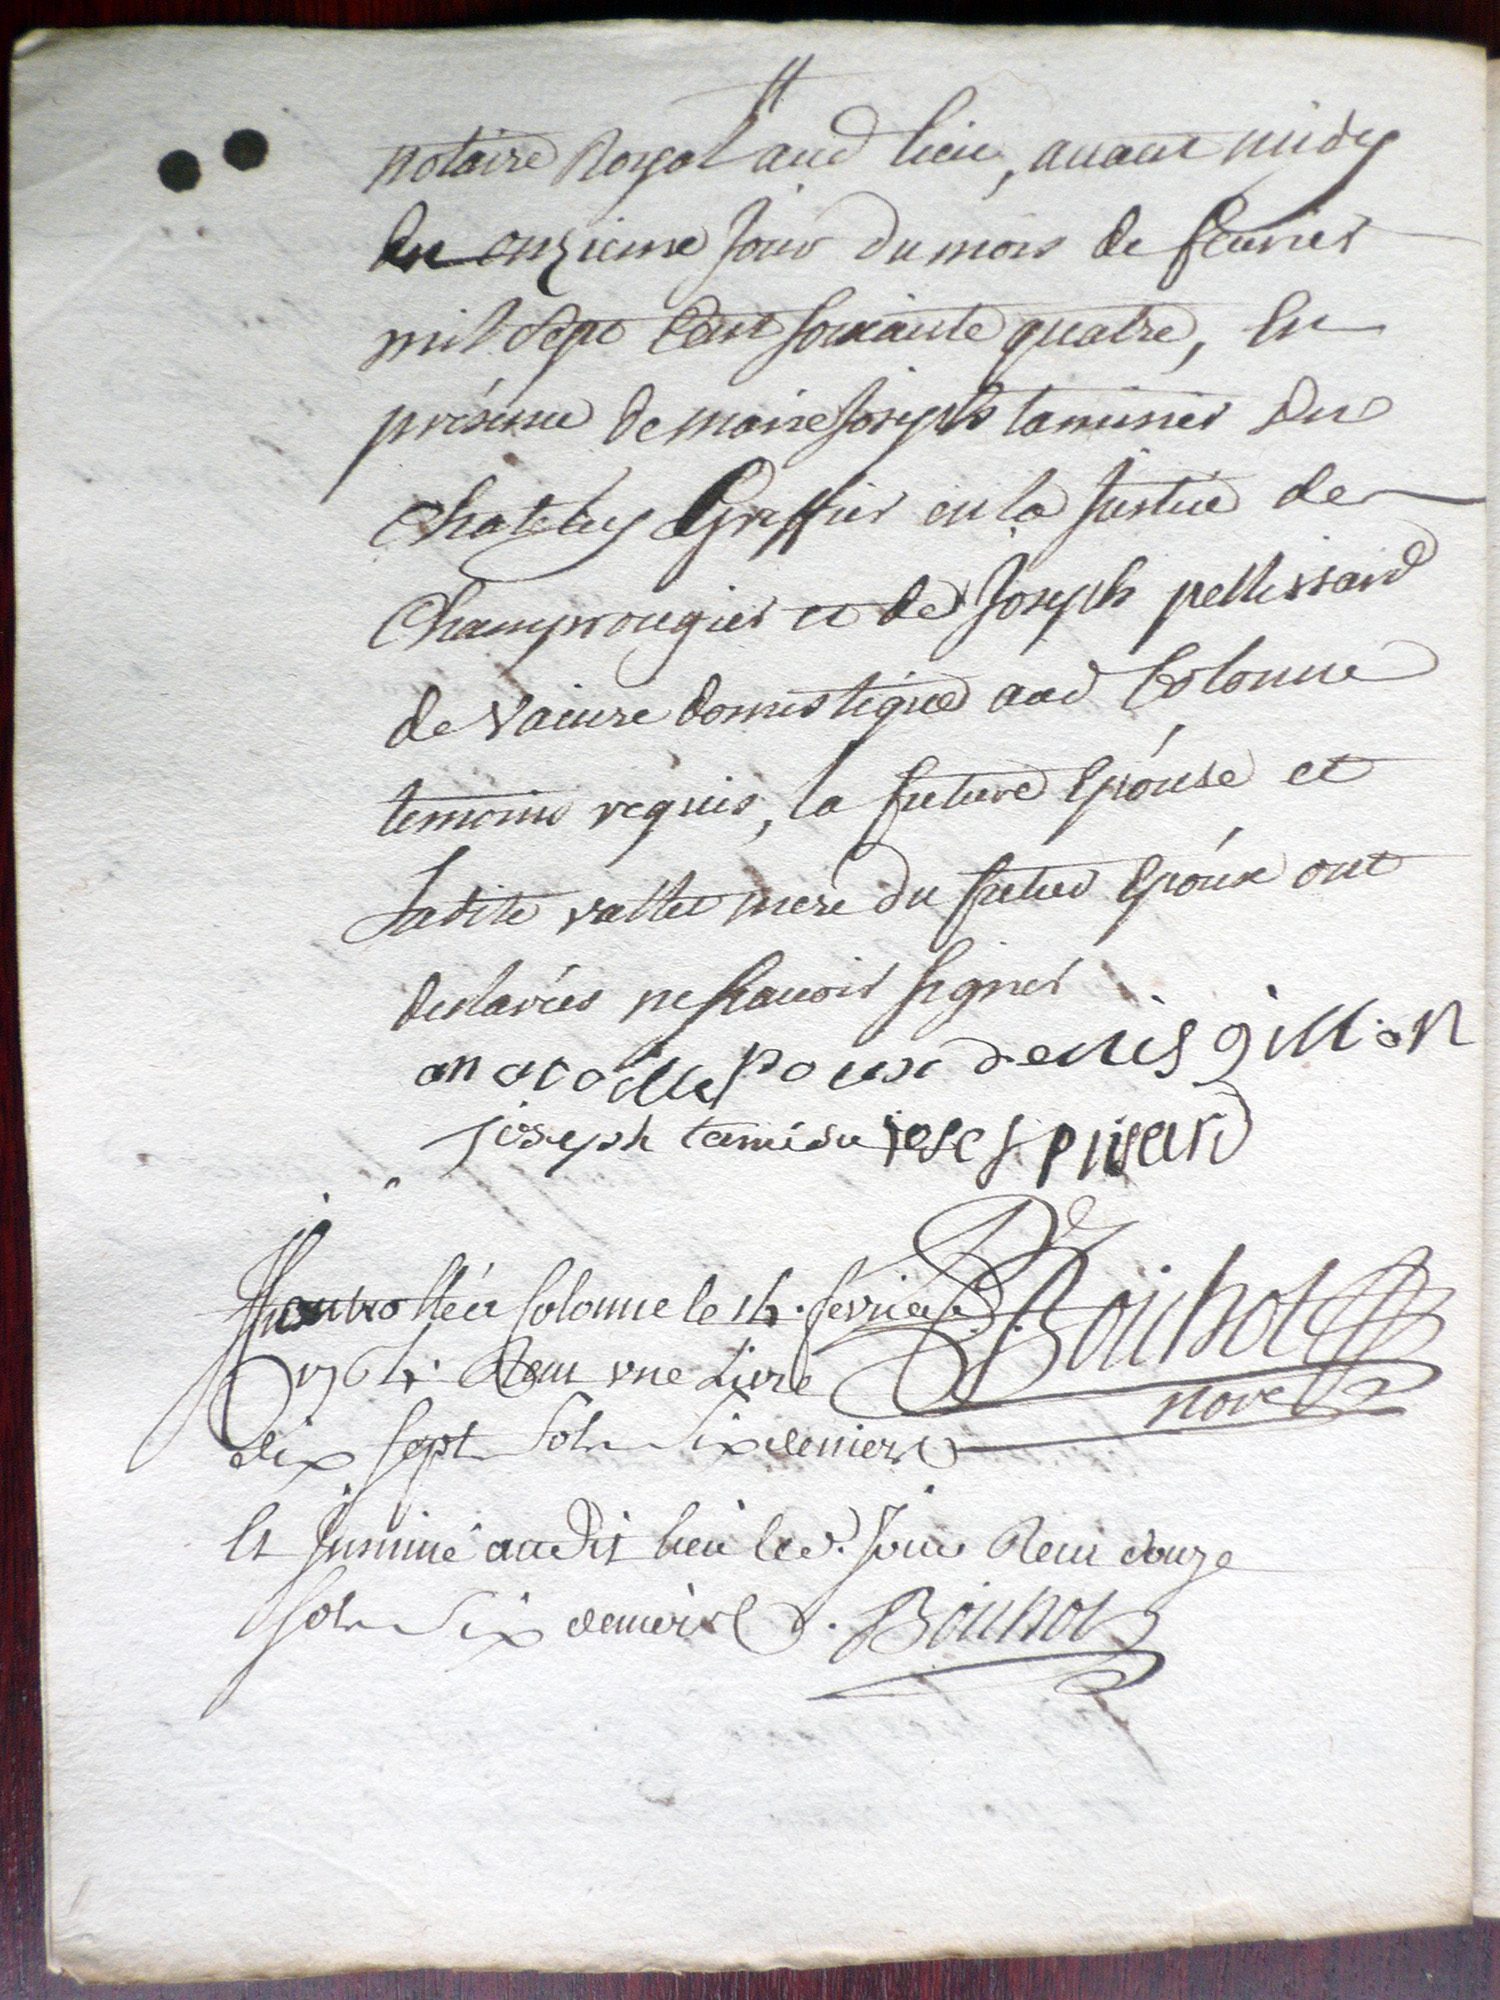 notaire Royal aud lieu, avant midy
du onzieme Jour du mois de feuvrier
mil sept Cent soixante quatre, En
présence de maire Joseph tamisier du
Chateley Greffier en la Justice de
Champrougier et de Joseph pellissard
de Vaivre domestique aud Colonne
temoins requis, la future Epóuse et
Ladite vallet mere du futur Epóux ont
declarées ne scavoir signer
denis gillion
Joseph tamisie josef prisard
Bouchot
nore
Controllé a Colonne le 14. fevrier
1764. Recu une Livre
dix sept sols six deniers
Et Insinué audit lieu led. Jour Recu douze
sols six deniers. Bouchot